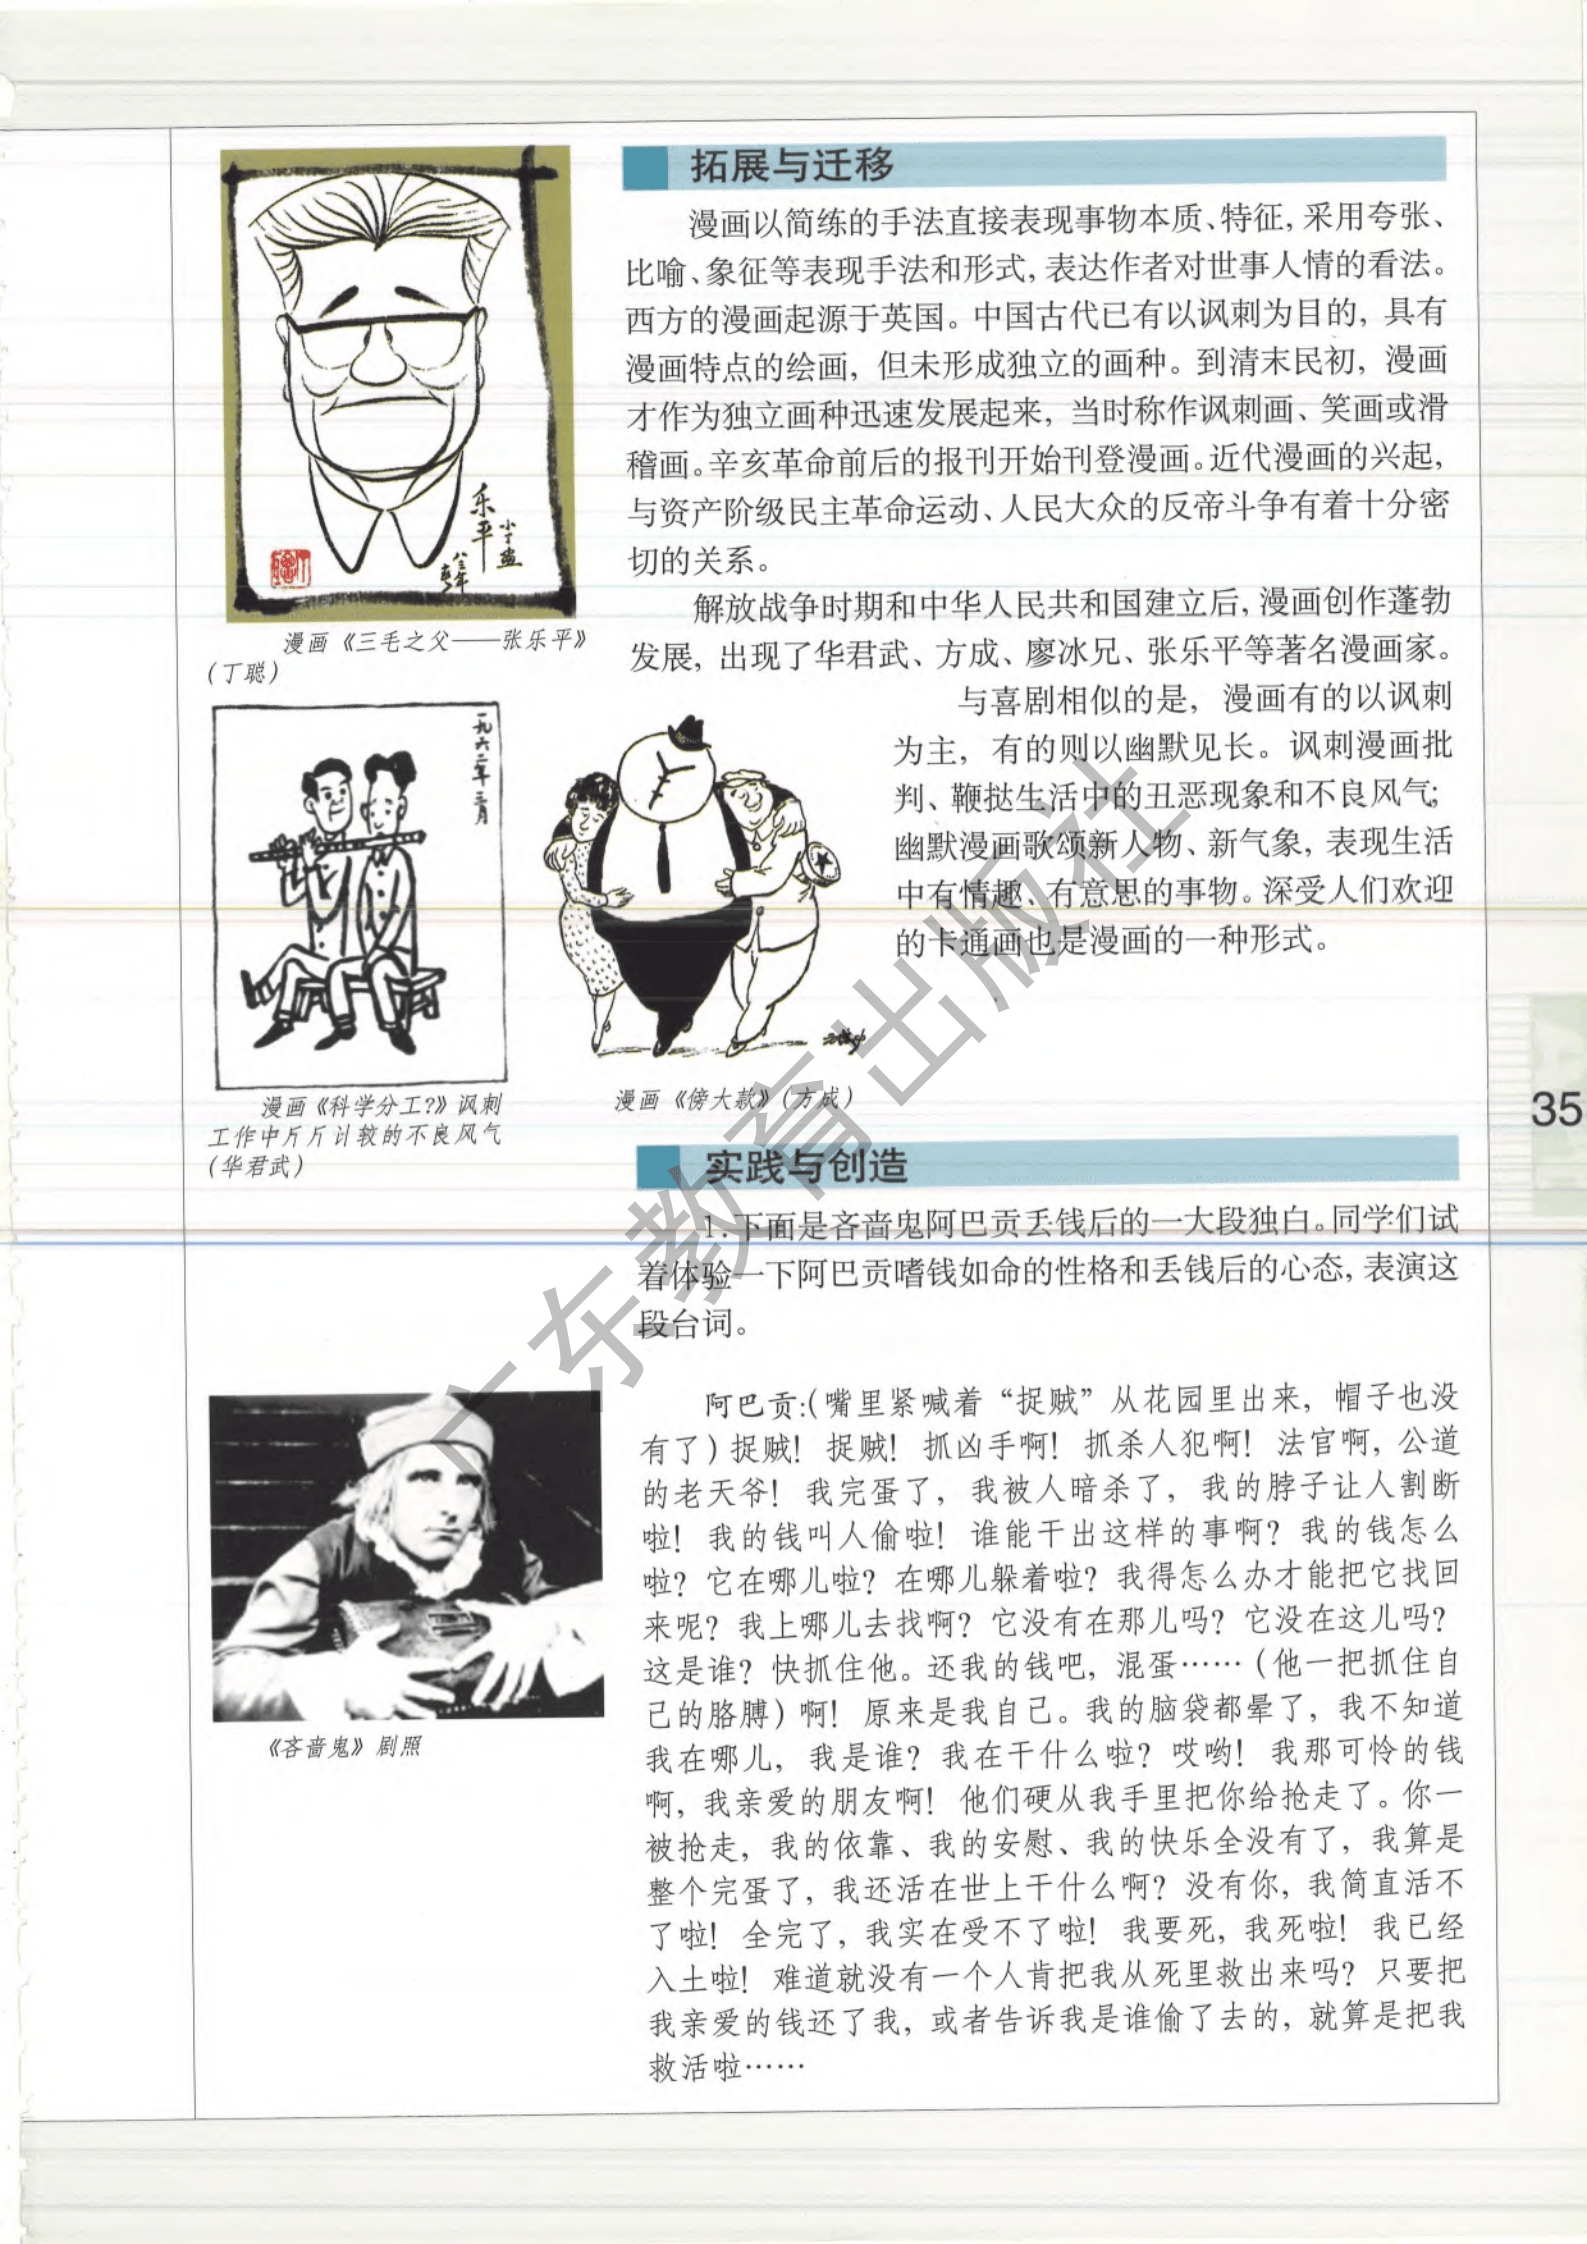 拓展与迁移
漫画以简练的手法直接表现事物本质、特征,采用夸张、
比喻、象征等表现手法和形式,表达作者对世事人情的看法。
西方的漫画起源于英国。中国古代已有以讽刺为目的,具有
漫画特点的绘画,但未形成独立的画种。到清末民初,漫画
才作为独立画种迅速发展起来,当时称作讽刺画、笑画或滑
稽画。辛亥革命前后的报刊开始刊登漫画。近代漫画的兴起,
与资产阶级民主革命运动、人民大众的反帝斗争有着十分密
切的关系。
解放战争时期和中华人民共和国建立后,漫画创作蓬勃
发展,出现了华君武、方成、廖冰兄、张乐平等著名漫画家。
与喜剧相似的是,漫画有的以讽刺
为主,有的则以幽默见长。讽刺漫画批
判、鞭挞生活中的丑恶现象和不良风气;
幽默漫画歌颂新人物、新气象,表现生活
中有情趣、有意思的事物。深受人们欢迎
的卡通画也是漫画的一种形式。
乐平
小丁画
八三年
漫画《三毛之父——张乐平》
(丁聪)
一九六二年三月
漫画《科学分工?》讽刺
工作中斤斤计较的不良风气
(华君武)
漫画《傍大款》(方成)
35
实践与创造
1.下面是吝啬鬼阿巴贡丢钱后的一大段独白。同学们试
着体验一下阿巴贡嗜钱如命的性格和丢钱后的心态,表演这
段台词。
阿巴贡:(嘴里紧喊着“捉贼”从花园里出来,帽子也没
有了)捉贼!捉贼!抓凶手啊!抓杀人犯啊!法官啊,公道
的老天爷!我完蛋了,我被人暗杀了,我的脖子让人割断
啦!我的钱叫人偷啦!谁能干出这样的事啊?我的钱怎么
啦?它在哪儿啦?在哪儿躲着啦?我得怎么办才能把它找回
来呢?我上哪儿去找啊?它没有在那儿吗?它没在这儿吗?
这是谁?快抓住他。还我的钱吧,混蛋……(他一把抓住自
己的胳膊)啊!原来是我自己。我的脑袋都晕了,我不知道
我在哪儿,我是谁?我在干什么啦?哎哟!我那可怜的钱
啊,我亲爱的朋友啊!他们硬从我手里把你给抢走了。你一
被抢走,我的依靠、我的安慰、我的快乐全没有了,我算是
整个完蛋了,我还活在世上干什么啊?没有你,我简直活不
了啦!全完了,我实在受不了啦!我要死,我死啦!我已经
入土啦!难道就没有一个人肯把我从死里救出来吗?只要把
我亲爱的钱还了我,或者告诉我是谁偷了去的,就算是把我
救活啦……
《吝啬鬼》剧照
广东教育出版社